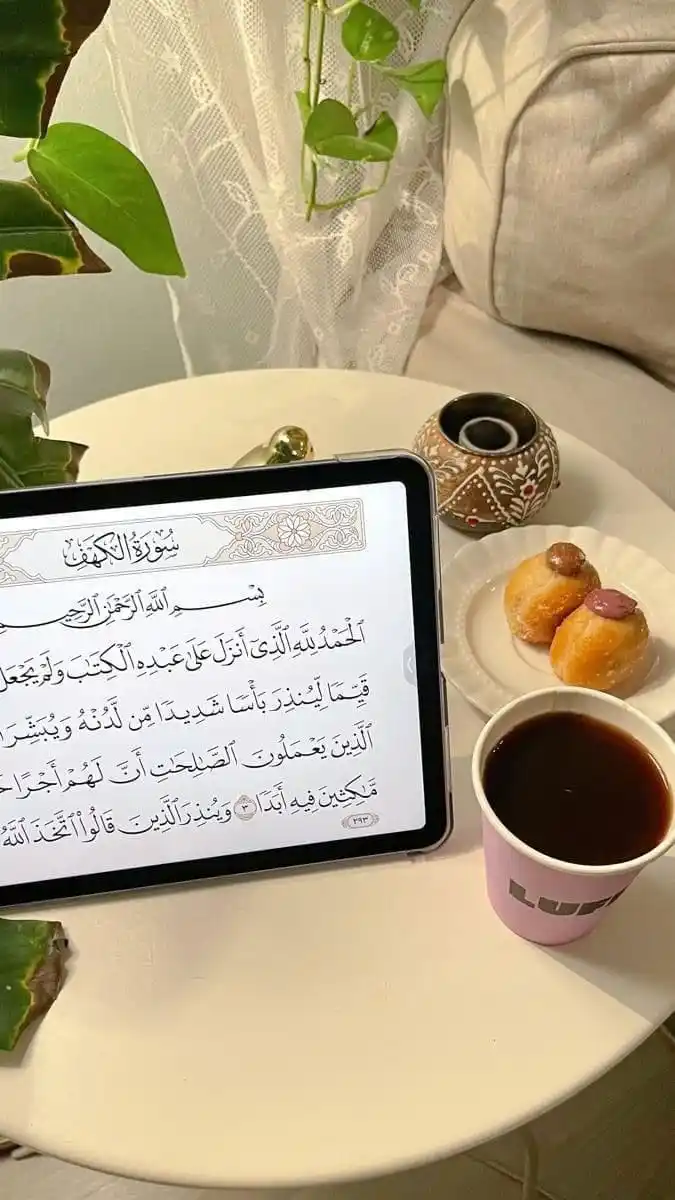 سُورَةُ الْكَهْفِ
بِسْمِ اللَّهِ الرَّحْمَٰنِ الرَّحِيمِ
الْحَمْدُ لِلَّهِ الَّذِي أَنزَلَ عَلَىٰ عَبْدِهِ الْكِتَٰبَ وَلَمْ يَجْعَل
قَيِّمًا لِّيُنذِرَ بَأْسًا شَدِيدًا مِّن لَّدُنْهُ وَيُبَشِّرَ
الَّذِينَ يَعْمَلُونَ الصَّٰلِحَٰتِ أَنَّ لَهُمْ أَجْرًا
مَّٰكِثِينَ فِيهِ أَبَدًا ٣ وَيُنذِرَ الَّذِينَ قَالُوا اتَّخَذَ اللَّهُ
٢٩٣